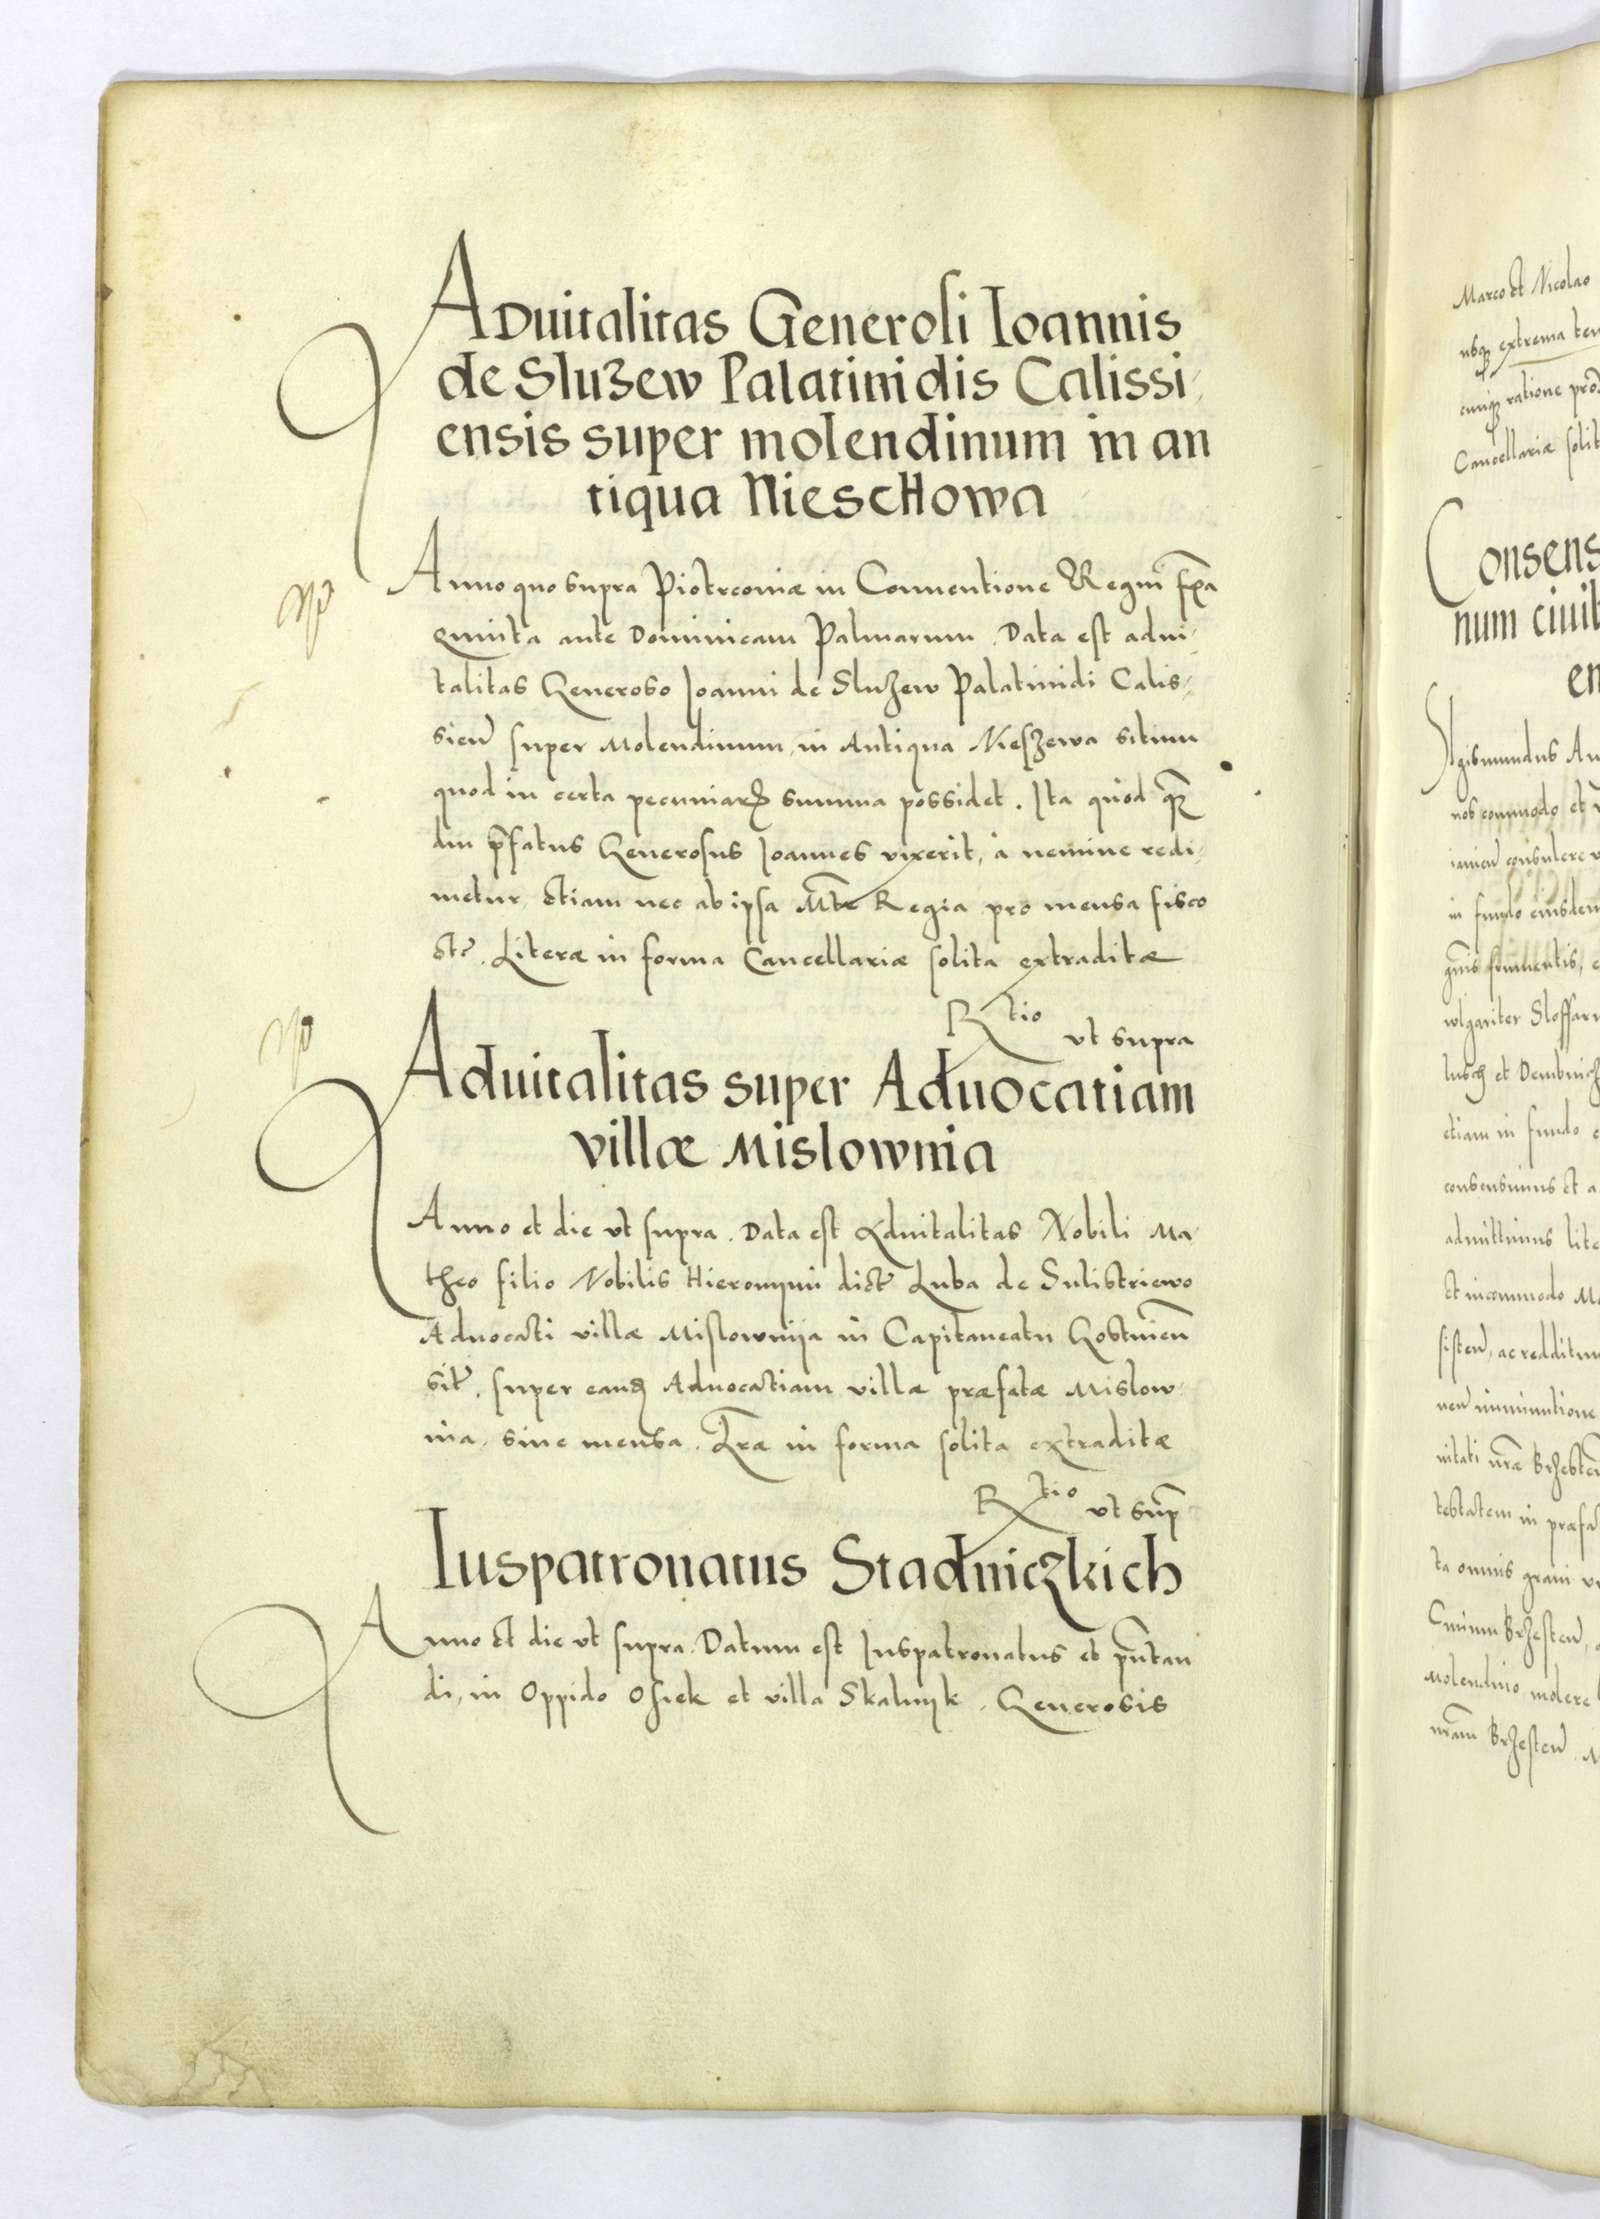 ADuitalitas Generosi Ioannis
de Sluzew Palatinidis Calissi
ensis super molendinum in an
tiqua Nieschowa
Anno quo supra Piotrcoviæ in Conventione Regni fẽa
quinta ante Dominicam Palmarum. Data est advi
talitas Generoso Joanni de Sluzew Palatinidi Calis
sieñ super Molendinum, in Antiqua Nieszewa situm
quod in certa pecuniarꝝ summa possidet. Ita quòd
diu p̃fatus Generosus Joannes vixerit, à nemine redi
metur, etiam nec ab ipsa Mte Regia pro mensa fisco
etc̃. Literæ in forma Cancellariæ solita extraditæ
Rtio ut supra
Aduitalitas super Aduocatiam
villæ Mislownia
Anno et die ut supra. Data est Advitalitas Nobili Ma
theo filio Nobilis Hieronymi dict̃ Luba de Sulistriewo
Advocati villæ Mislownija in Capitaneatu Gostinen̄
sit̃. super eandē Advocatiam villæ præfatæ Mislow
nia, sine mensa. Lr̃æ in forma solita extraditæ
Rtio ut sup̃
Iuspatronatus Stadniczkich
Anno et die ut supra. Datum est Iuspatronatus et p̃ntan
di, in Oppido Osiek et villa Skalnyk, Generosis
Marco et Nicolao
usq; extrema
cuiq; ratione
Cancellariæ
Consens
num ciuit
en
gismundus
nos commodo et
consulere
in fundo eiusdem
vlgariter
et
etiam in fundo
consensimus et a
admittimus lite
et incommodo
ac redditum
imminutione
nitati nr̃æ
testatem in præfa
ta omnis grani
Molendino molere
nr̃am